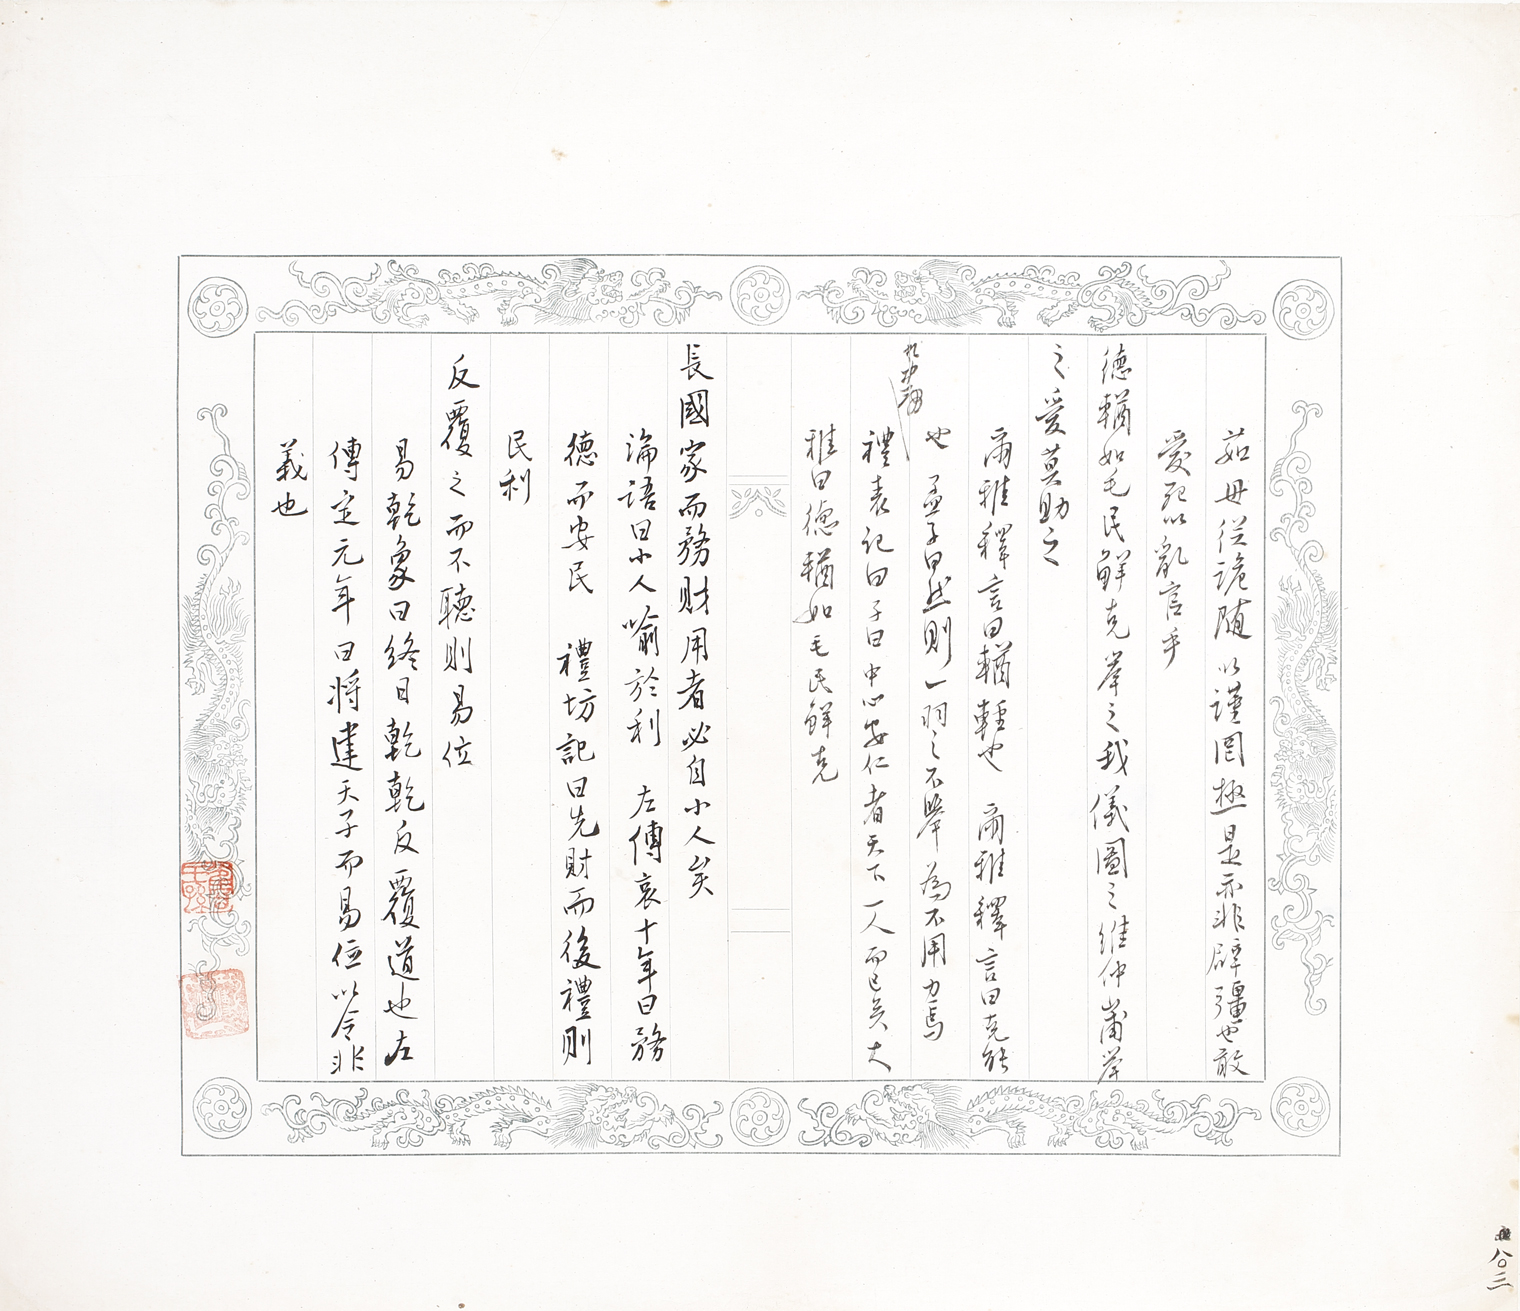 茹毋從詭隨以謹罔極是亦非辟彊也敢
愛死以亂官乎
德輶如毛民鮮克舉之我儀圖之維仲山甫舉
之愛莫助之
爾雅釋言曰輶輕也 爾雅釋言曰克能
也 孟子曰然則一羽之不舉為不用力焉
禮表記曰子曰中心安仁者天下一人而已矣大
雅曰德輶如毛民鮮克
長國家而務財用者必自小人矣
論語曰小人喻於利 左傳哀十年曰務
德而安民 禮坊記曰先財而後禮則
民利
反覆之而不聽則易位
易乾象曰終日乾乾反覆道也左
傳定元年曰將建天子而易位以令非
義也
八〇三